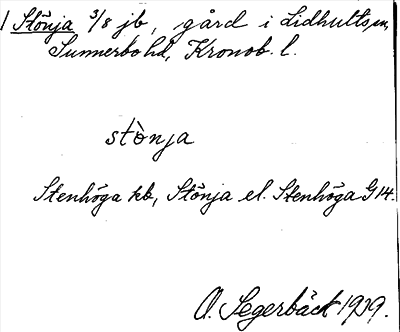 1 Stönja 3/8 jb, gård i Lidhults sn,
Sunnerbo hd, Kronob. l.
stö̀nja
Stenhöga kb, Stönja el. Stenhöga G14.
O. Segerbäck 1939.